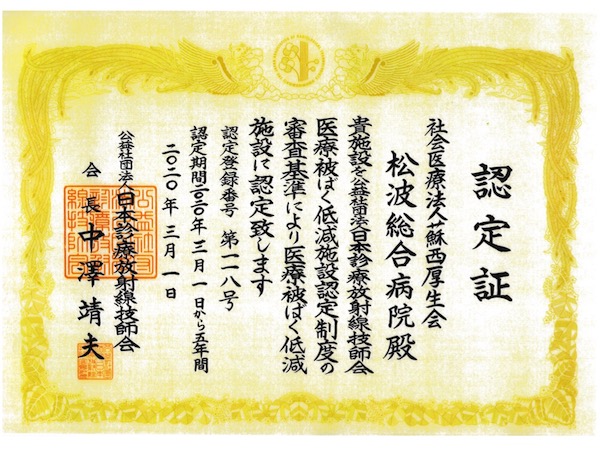 認定証
社会医療法人蘇西厚生会
松波総合病院殿
貴施設を公益社団法人日本診療放射線技師会
医療被ばく低減施設認定制度の
審査基準により医療被ばく低減
施設に認定致します
認定登録番号 第一一八号
認定期間二〇二〇年三月一日から五年間
二〇二〇年三月一日
公益社団法人日本診療放射線技師会
会長 中澤靖夫